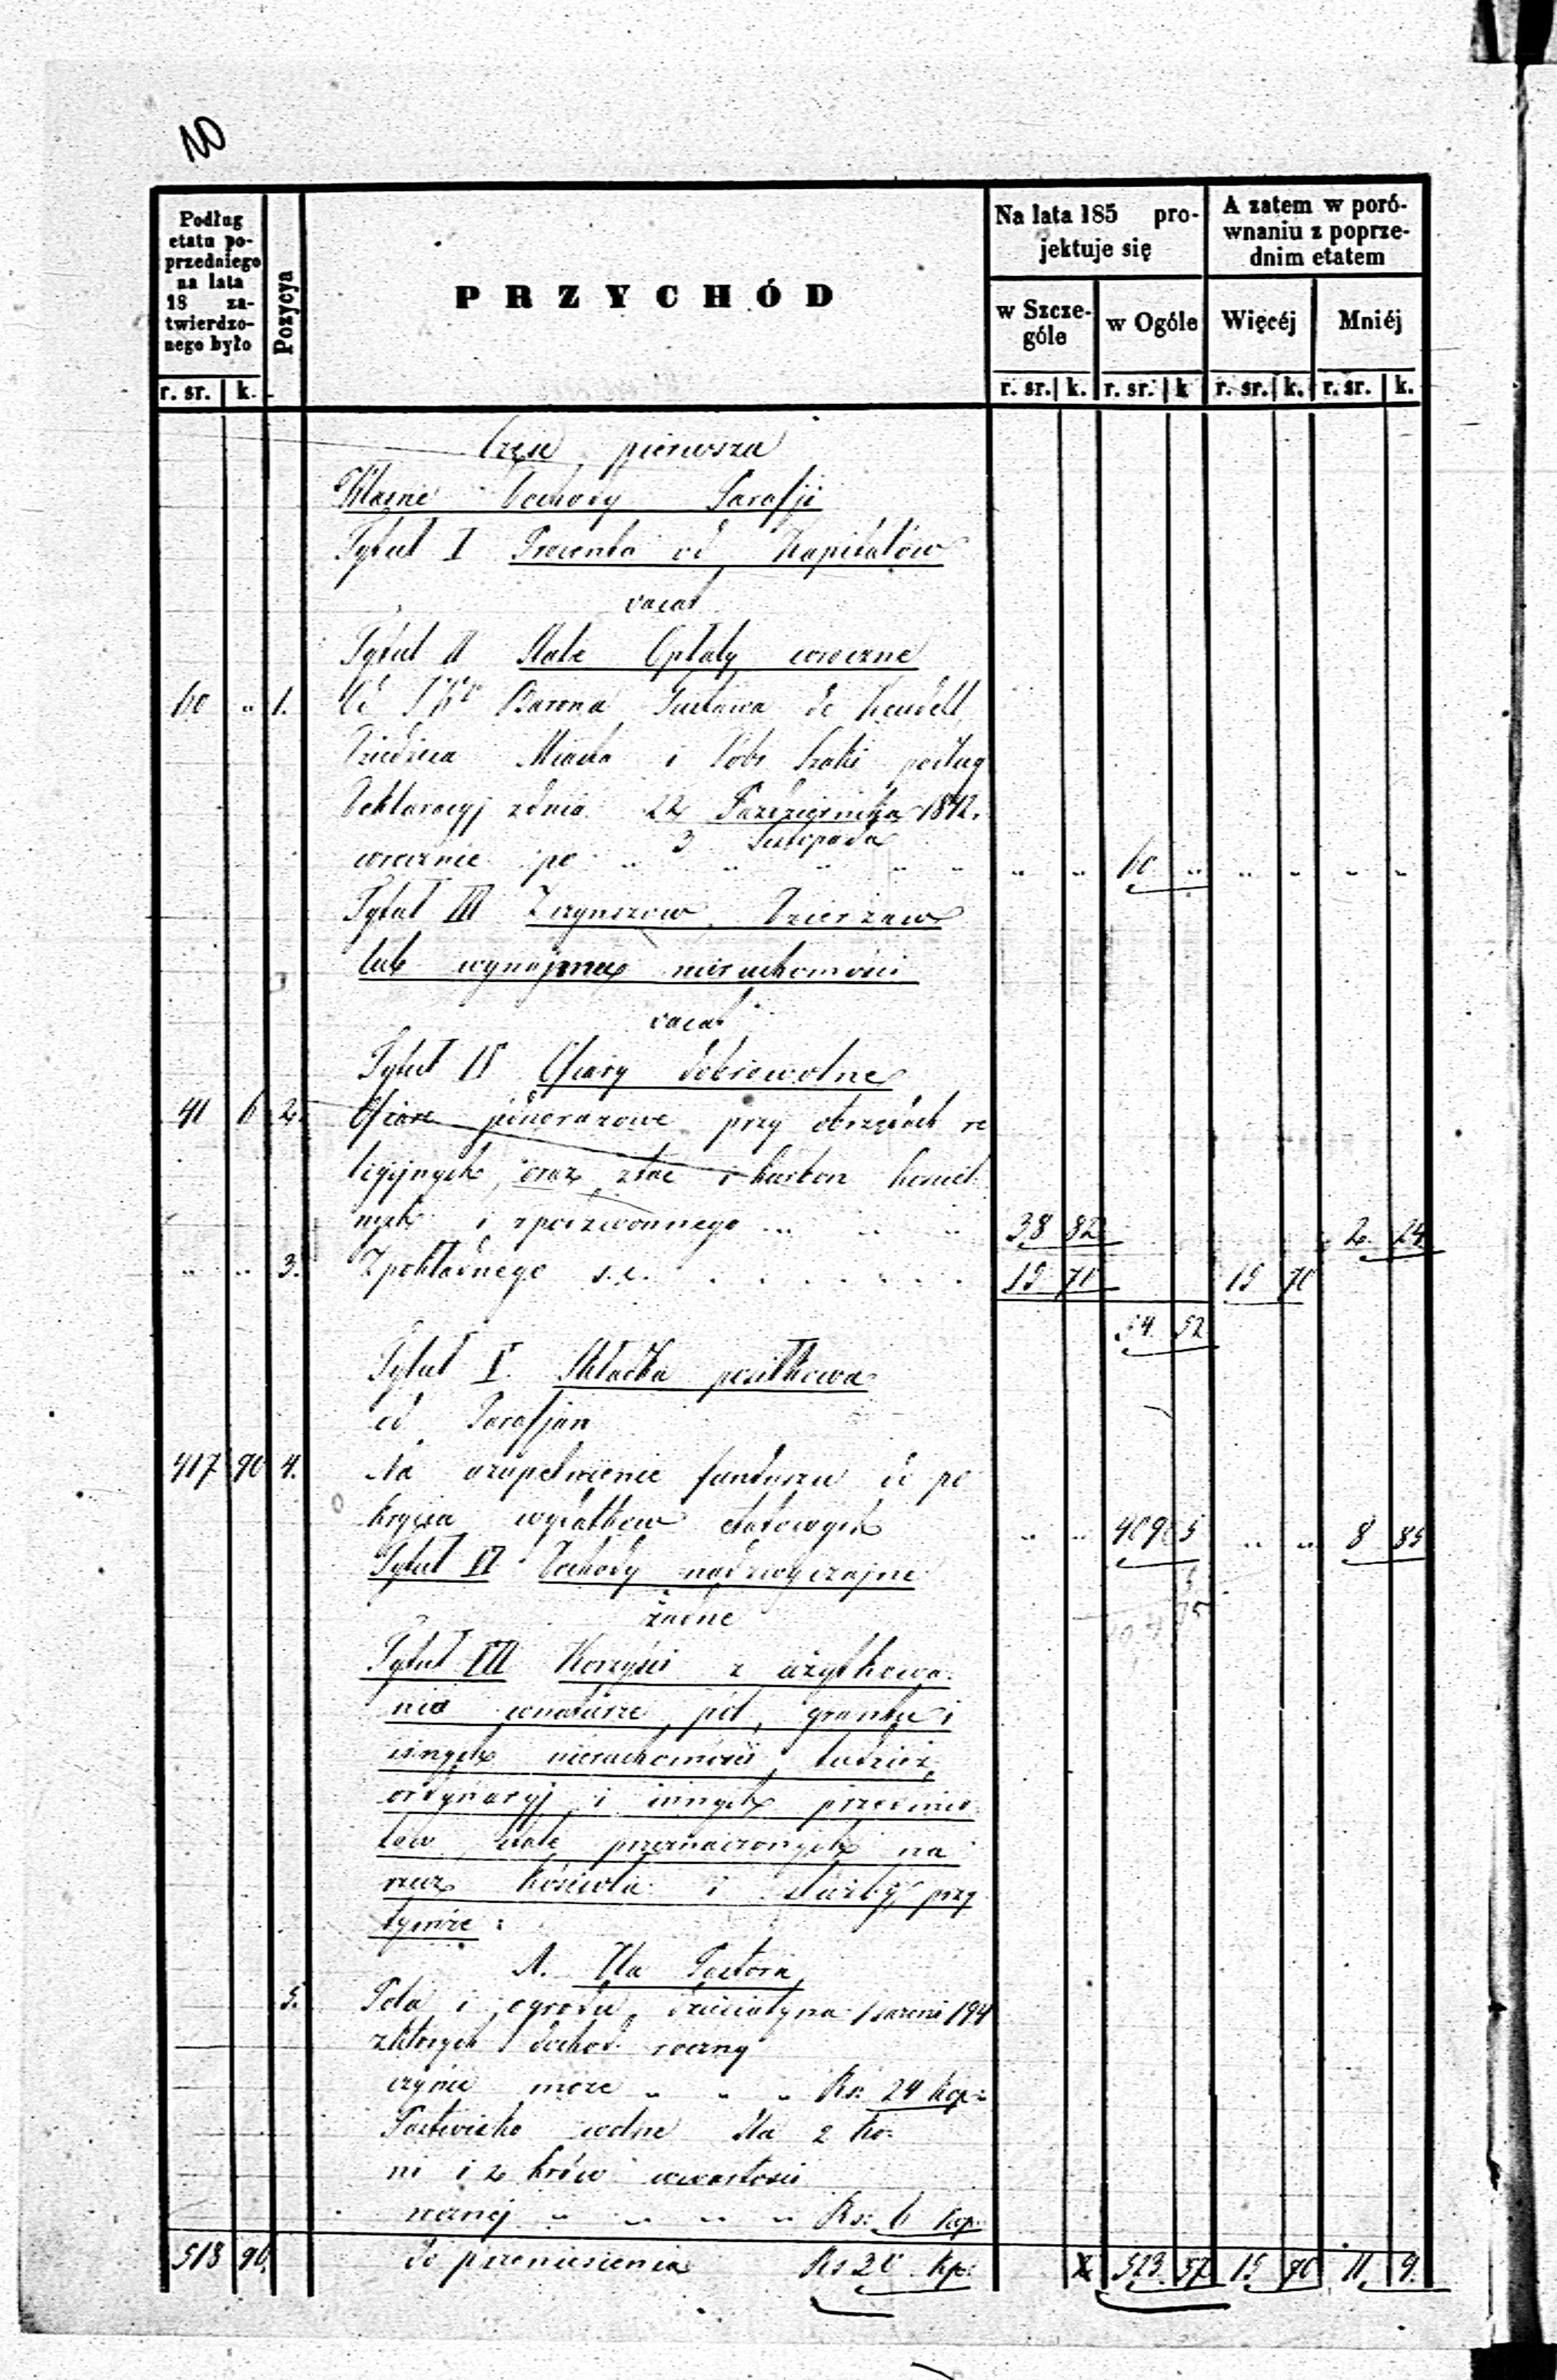 10
Podług etatu poprzedniego na lata 18 zatwierdzonego było
Pozycya
PRZYCHÓD
Na lata 185 projektuje się
A zatem w porównaniu z poprzednim etatem
w Szczególe
w Ogóle
Więcéj
Mniéj
r. sr. k. r. sr. k. r. sr. k r. sr. k. r. sr. k.
Część pierwsza
Własne Dochody Parafji
Tytuł I Procenta od Kapitałów
vacat
Tytuł II Stałe Opłaty wroczne
60 " 1. Od Barona Gustawa de Keudell
Dziedzica Miasta i Dóbr Szaki podług
Deklaracyj z dnia 22 Października 1842.
3 Listopada
wrocznie po " " " " " " " 60 " " " " "
Tytuł III Z czynszów, Dzierżaw
lub wynajmu nieruchomości
vacat
Tytuł IV Ofiary dobrowolne
41 6 2. Ofiary jednorazowe przy obrzędach re
ligijnych, oraz z tac i karbon kościel
nych i z podzwonnego 38 82 2 24
" " 3. Z pokładnego s.c. 15 70 15 70
54 52
Tytuł V. Składka posiłkowa
od Parafjan
417 90 4. Na uzupełnienie funduszu do po
krycia wydatków etatowych " " 409 5 " " 8 85
Tytuł VI Dochody nadzwyczajne
żadne
Tytuł VII Korzyści z użytkowa
nia w naturze, pól, gruntu i
innych nieruchomości, tudzież
ordynaryj i innych przedmio
tów, stale przeznaczonych na
rzecz Kościoła i służby przy
tymże:
A. Dla Pastora
5. Pola i ogrodu, dziesiatyna 1 sążeni 194
z których dochód roczny
czynić może " " " Rs: 24 kop:
Pastwisko wolne dla 2 ko
ni i 2 krów w wartości
rocznej " " " " Rs: 6 kop:
518 96 do przeniesienia Rs 30 kp: X 523 57 15 70 11 9.